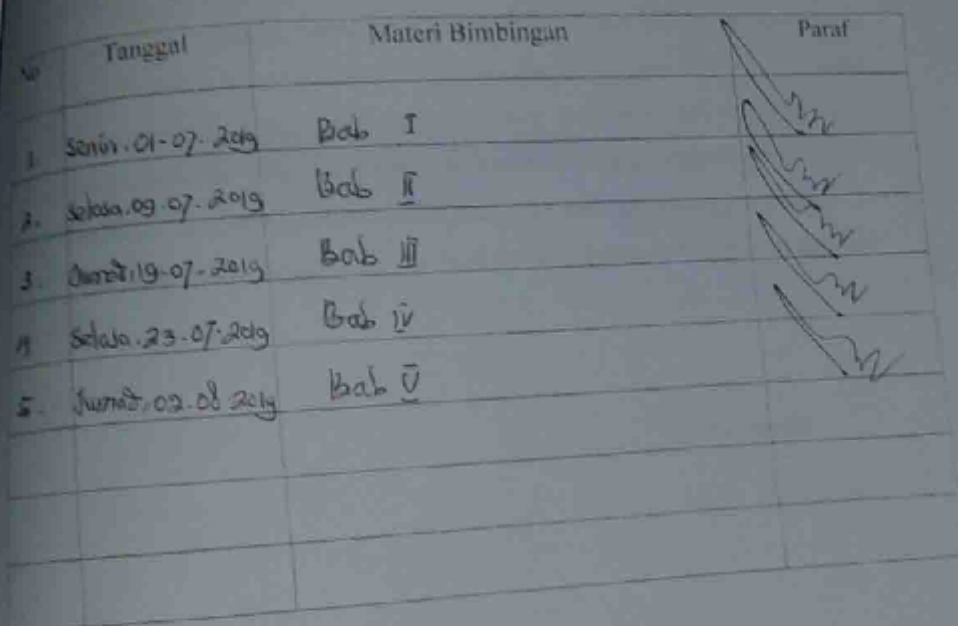 No Tanggal Materi Bimbingan Paraf
1. Senin. 01-07-2019 Bab I
2. Selasa. 09-07-2019 Bab II
3. Jumat. 19-07-2019 Bab III
4 Selasa. 23-07-2019 Bab IV
5. Jumat. 02.08 2019 Bab V